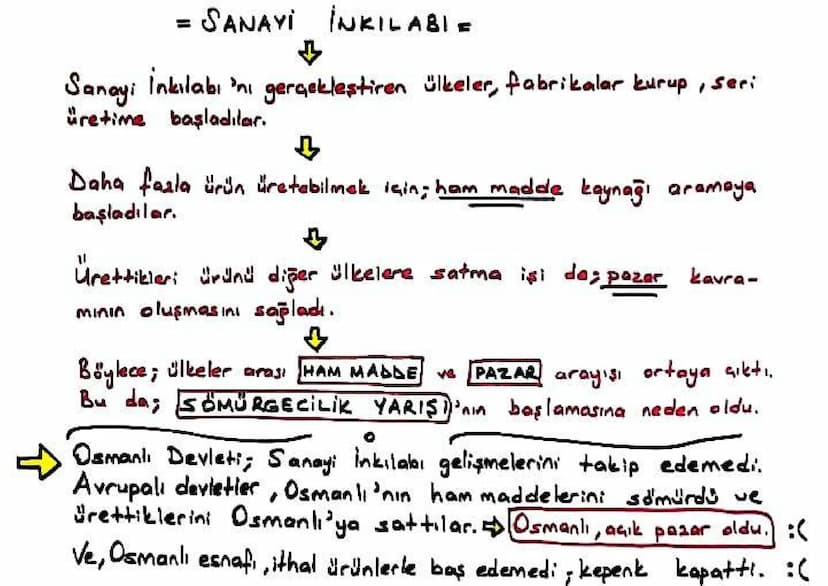 = SANAYİ İNKILABI =
Sanayi İnkılabı'nı gerçekleştiren ülkeler, fabrikalar kurup, seri
üretime başladılar.
Daha fazla ürün üretebilmek için; ham madde kaynağı aramaya
başladılar.
Ürettikleri ürünü diğer ülkelere satma işi da; pazar kavra-
mının oluşmasını sağladı.
Böylece; ülkeler arası HAM MADDE ve PAZAR arayışı ortaya çıktı.
Bu da; SÖMÜRGECİLİK YARIŞI'nın başlamasına neden oldu.
Osmanlı Devleti; Sanayi İnkılabı gelişmelerini takip edemedi.
Avrupalı devletler, Osmanlı'nın ham maddelerini sömürdü ve
ürettiklerini Osmanlı'ya sattılar. ⇨ Osmanlı, açık pazar oldu. :(
Ve, Osmanlı esnafı, ithal ürünlerle baş edemedi, kepenk kapattı. :(